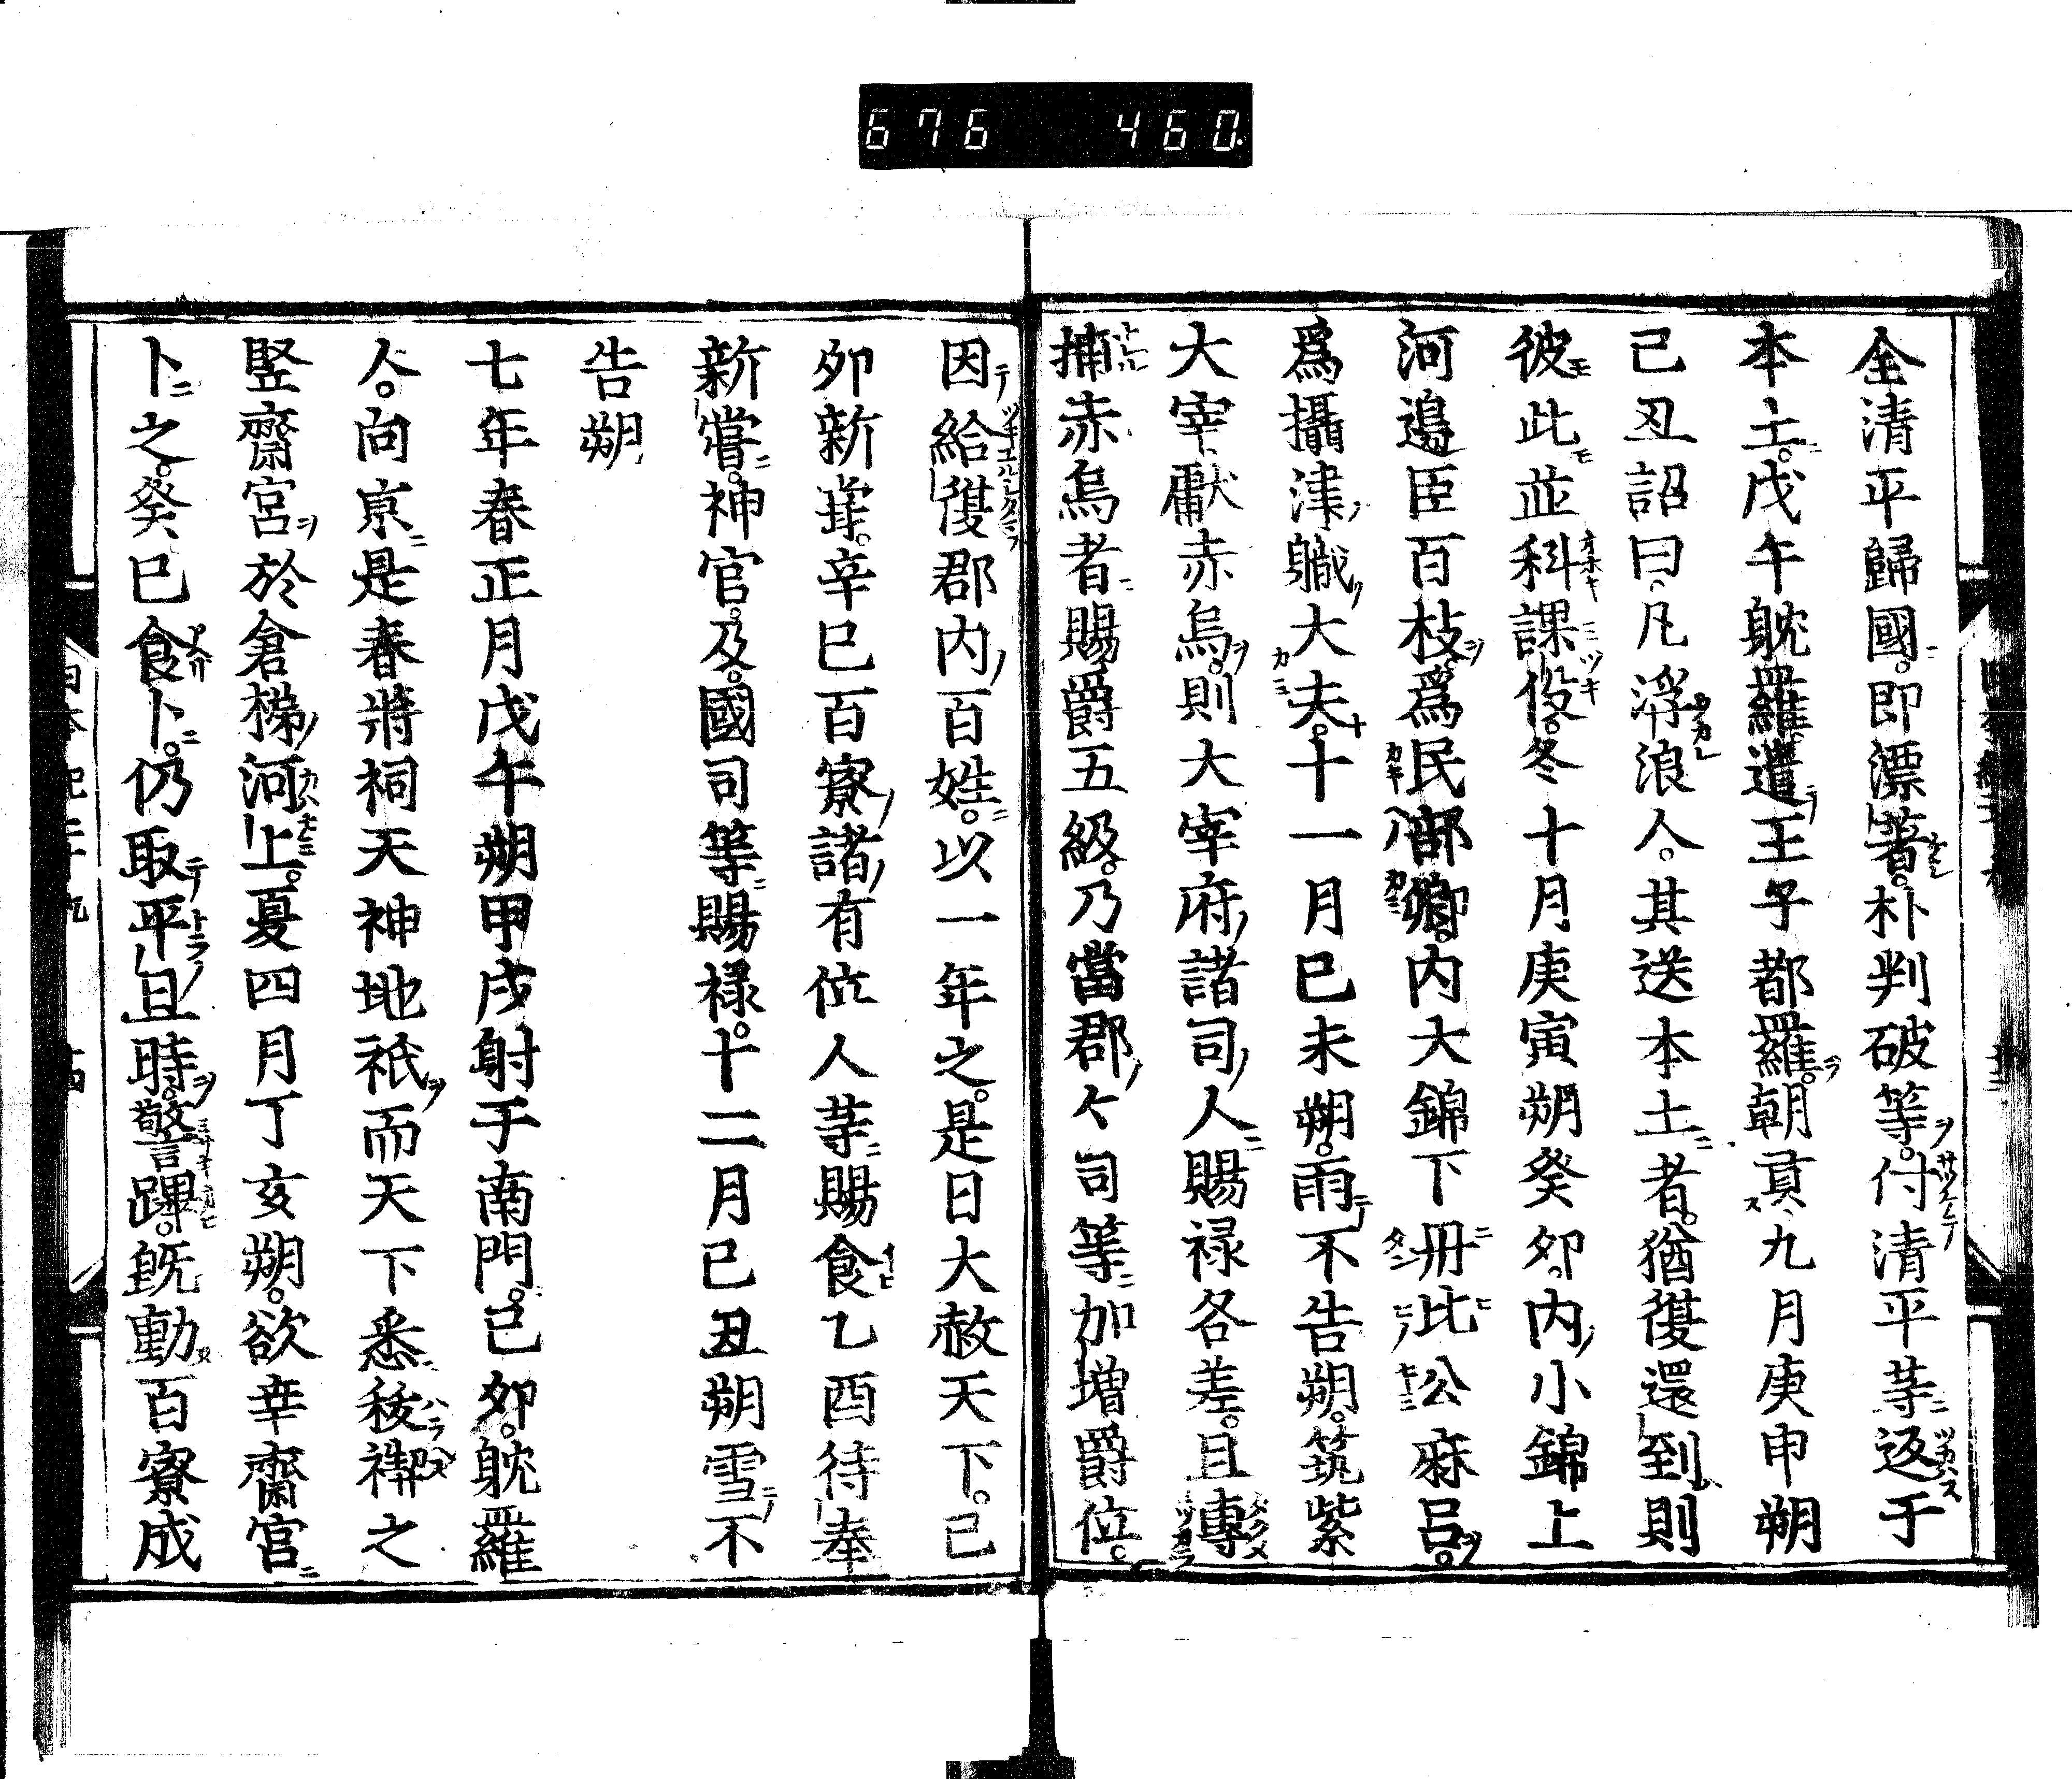 676 460
全清平歸國。即漂著。朴判破等。付清平䒭返于
本土。戊午躭羅。遣王子都羅。朝貢、九月庚申朔
己丑詔曰、凡浮浪人。其送本土者。猶復還到則
彼此並科課役。冬十月庚寅朔癸夘。内小錦上
河邉臣百枝爲民部卿。内大錦下丹比公麻呂。
爲攝津職大夫。十一月已未朔。雨不告朔。筑紫
大宰、獻赤烏。則大宰府諸司人賜禄各差。且專
捕赤烏者賜爵五級。乃當郡々司等加増爵位。
因給復郡内百姓。以一年之。是日大赦天下。己
夘新嘗。辛巳百寮諸有位人䒭賜食乙酉待奉
新嘗。神官。及。國司等賜禄。十二月已丑朔雪不
告朔
七年春正月戊午朔甲戌射于南門。己夘。躭羅
人。向京是春將祠天神地祇而天下悉秡禊之
竪齋宮於倉梯河上。夏四月丁亥朔。欲幸齋宮
卜之。癸巳食卜。仍取平旦時。警蹕。旣動百寮成